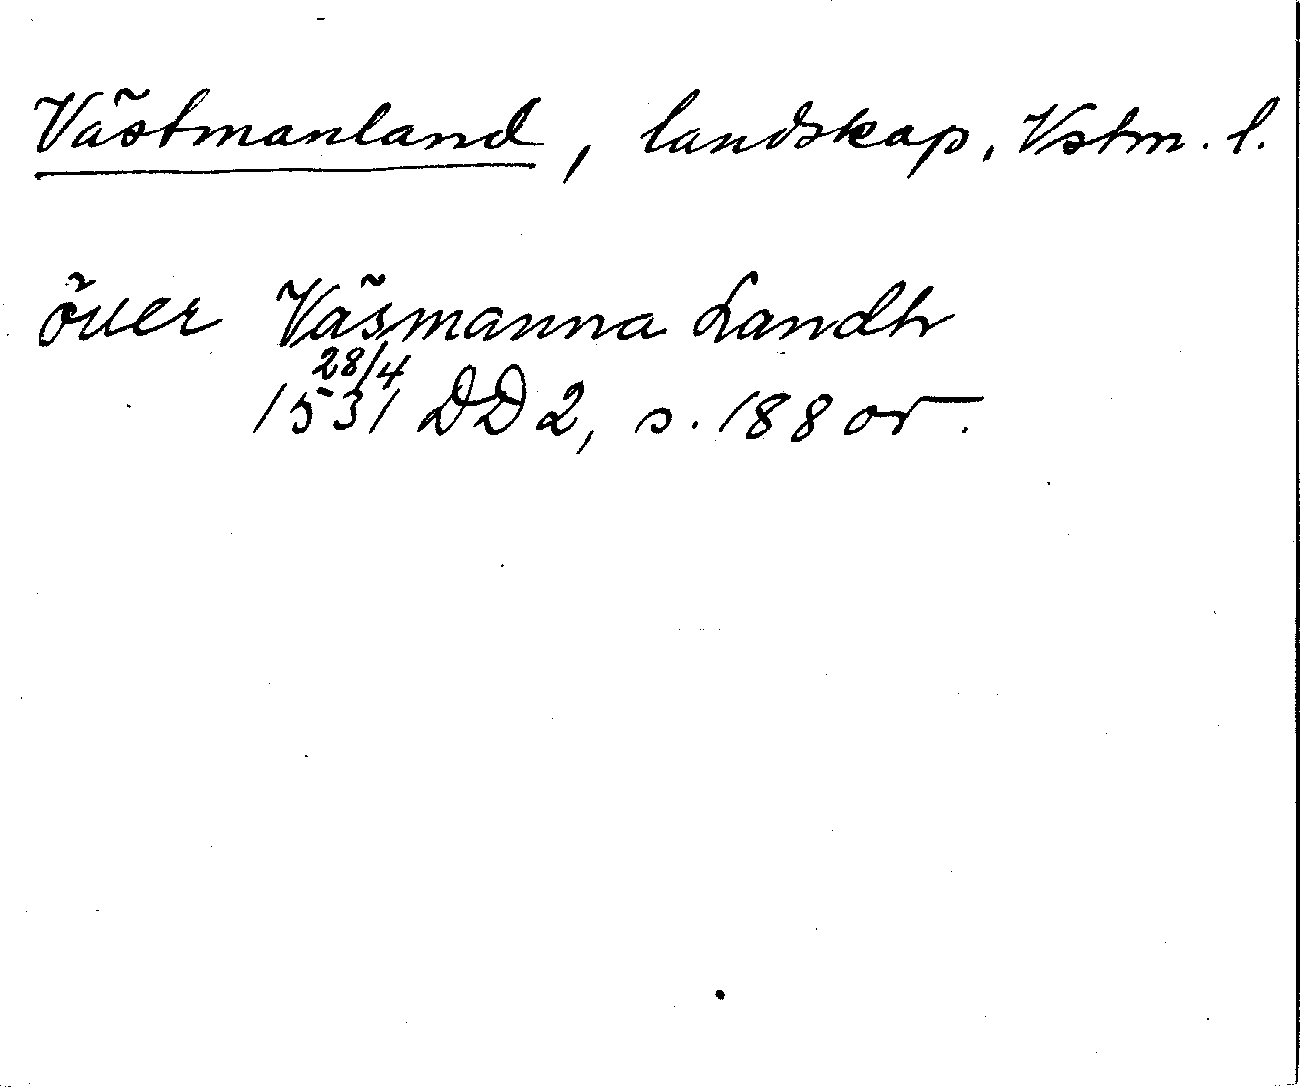 Västmanland, landskap, Vstm. l.
över Väsmanna Landh
28/4
1531 DD 2, s. 188 or.